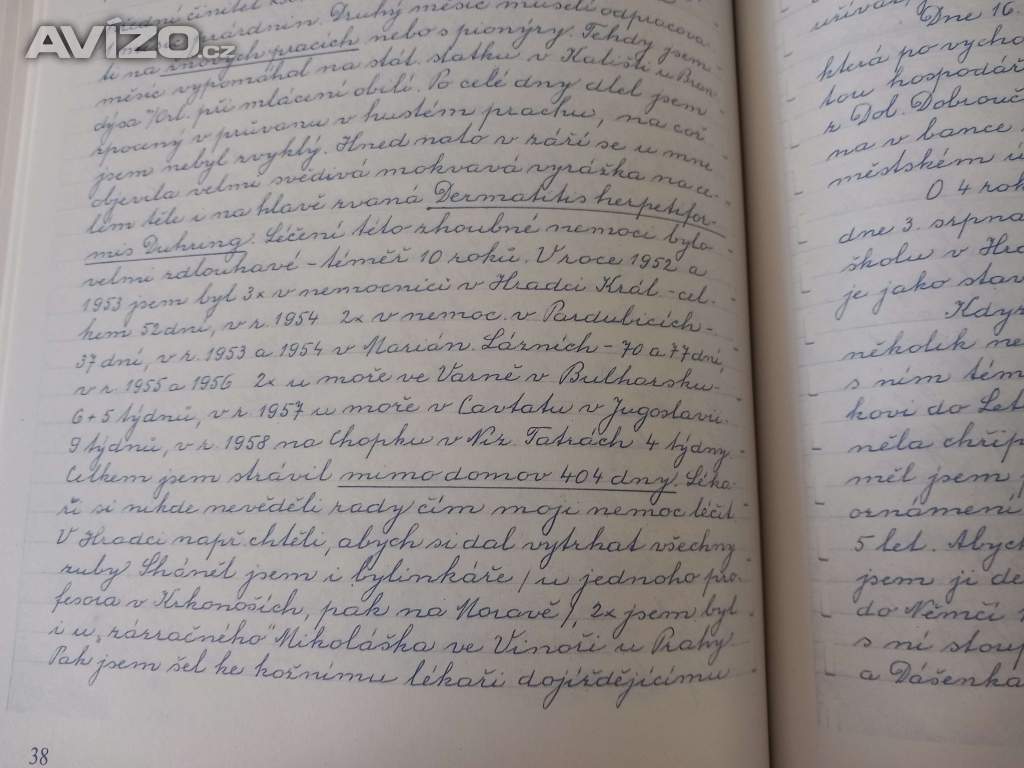 AVÍZO.cz
prázdnin. Druhý měsíc museli odpracova-
ti na žňových pracích nebo s pionýry. Tehdy jsem
měsíc vypomáhal na stát. statku v Kališti u Bran-
dýsa n/Orl. při mlácení obilí. Po celé dny dlel jsem
zpocený v průvanu v hustém prachu, na což
jsem nebyl zvyklý. Ihned na to v září se u mni
objevila velmi svědivá mokvavá vyrážka na ce-
lém těle i na hlavě zvaná Dermatitis herpetifor-
mis Duhring. Léčení této zhoubné nemoci bylo
velmi zdlouhavé - téměř 10 roků. V roce 1952 a
1953 jsem byl 3x v nemocnici v Hradci Král. - cel-
kem 52 dní, v r. 1954 2x v nemoc. v Pardubicích -
37 dní, v r. 1953 a 1954 v Marián. Lázních - 70 a 77 dní,
v r. 1955 a 1956 2x u moře ve Varně v Bulharsku -
6 + 5 týdnů, v r. 1957 u moře v Cavtatu v Jugoslavii
9 týdnů, v r. 1958 na Chopku v Níz. Tatrách 4 týdny.
Celkem jsem strávil mimo domov 404 dny. Léka-
ři si nikde nevěděli rady čím moji nemoc léčit
V Hradci např. chtěli, abych si dal vytrhat všechny
zuby. Sháněl jsem i bylinkáře / u jednoho pro-
fesora v Krkonoších, pak na Moravě /, 2x jsem byl
i u „zázračného" Mikoláška ve Vinoři u Prahy
Pak jsem šel ke kožnímu lékaři dojíždějícímu
38
Dne 16.
která po vycho
tou hospodář
z Dol. Dobrouč
na v bance.
městském ú
O 4 rok
dne 3. srpna
školu v Hra
je jako stav
Když
několik ne
s ním tém
kovi do Let
něla chřip
měl jsem
oznámení
5 let. Abych
jsem ji de
do Němčí
s ní stoup
a Dášenka